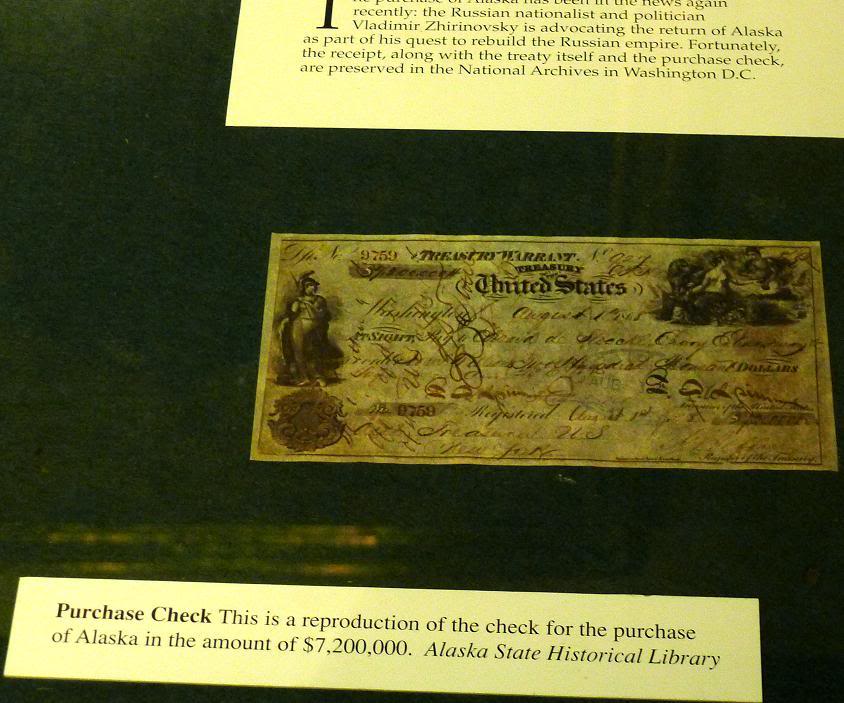 purchase of Alaska has been in the news again
recently: the Russian nationalist and politician
Vladimir Zhirinovsky is advocating the return of Alaska
as part of his quest to rebuild the Russian empire. Fortunately,
the receipt, along with the treaty itself and the purchase check,
are preserved in the National Archives in Washington D.C.
9759 TREASURY WARRANT.
TREASURY
United States
Washington August 1st
AT SIGHT, Pay
Two Hundred Thousand DOLLARS
No. 9759 Registered Aug 1st
Treasurer U.S
New York
Register of the Treasury
Purchase Check This is a reproduction of the check for the purchase
of Alaska in the amount of $7,200,000. Alaska State Historical Library